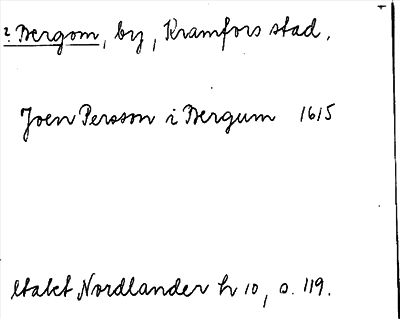 2. Bergom, by, Kramfors stad.
Joen Persson i Bergum 1615
Utakt Nordlander h 10, s. 119.